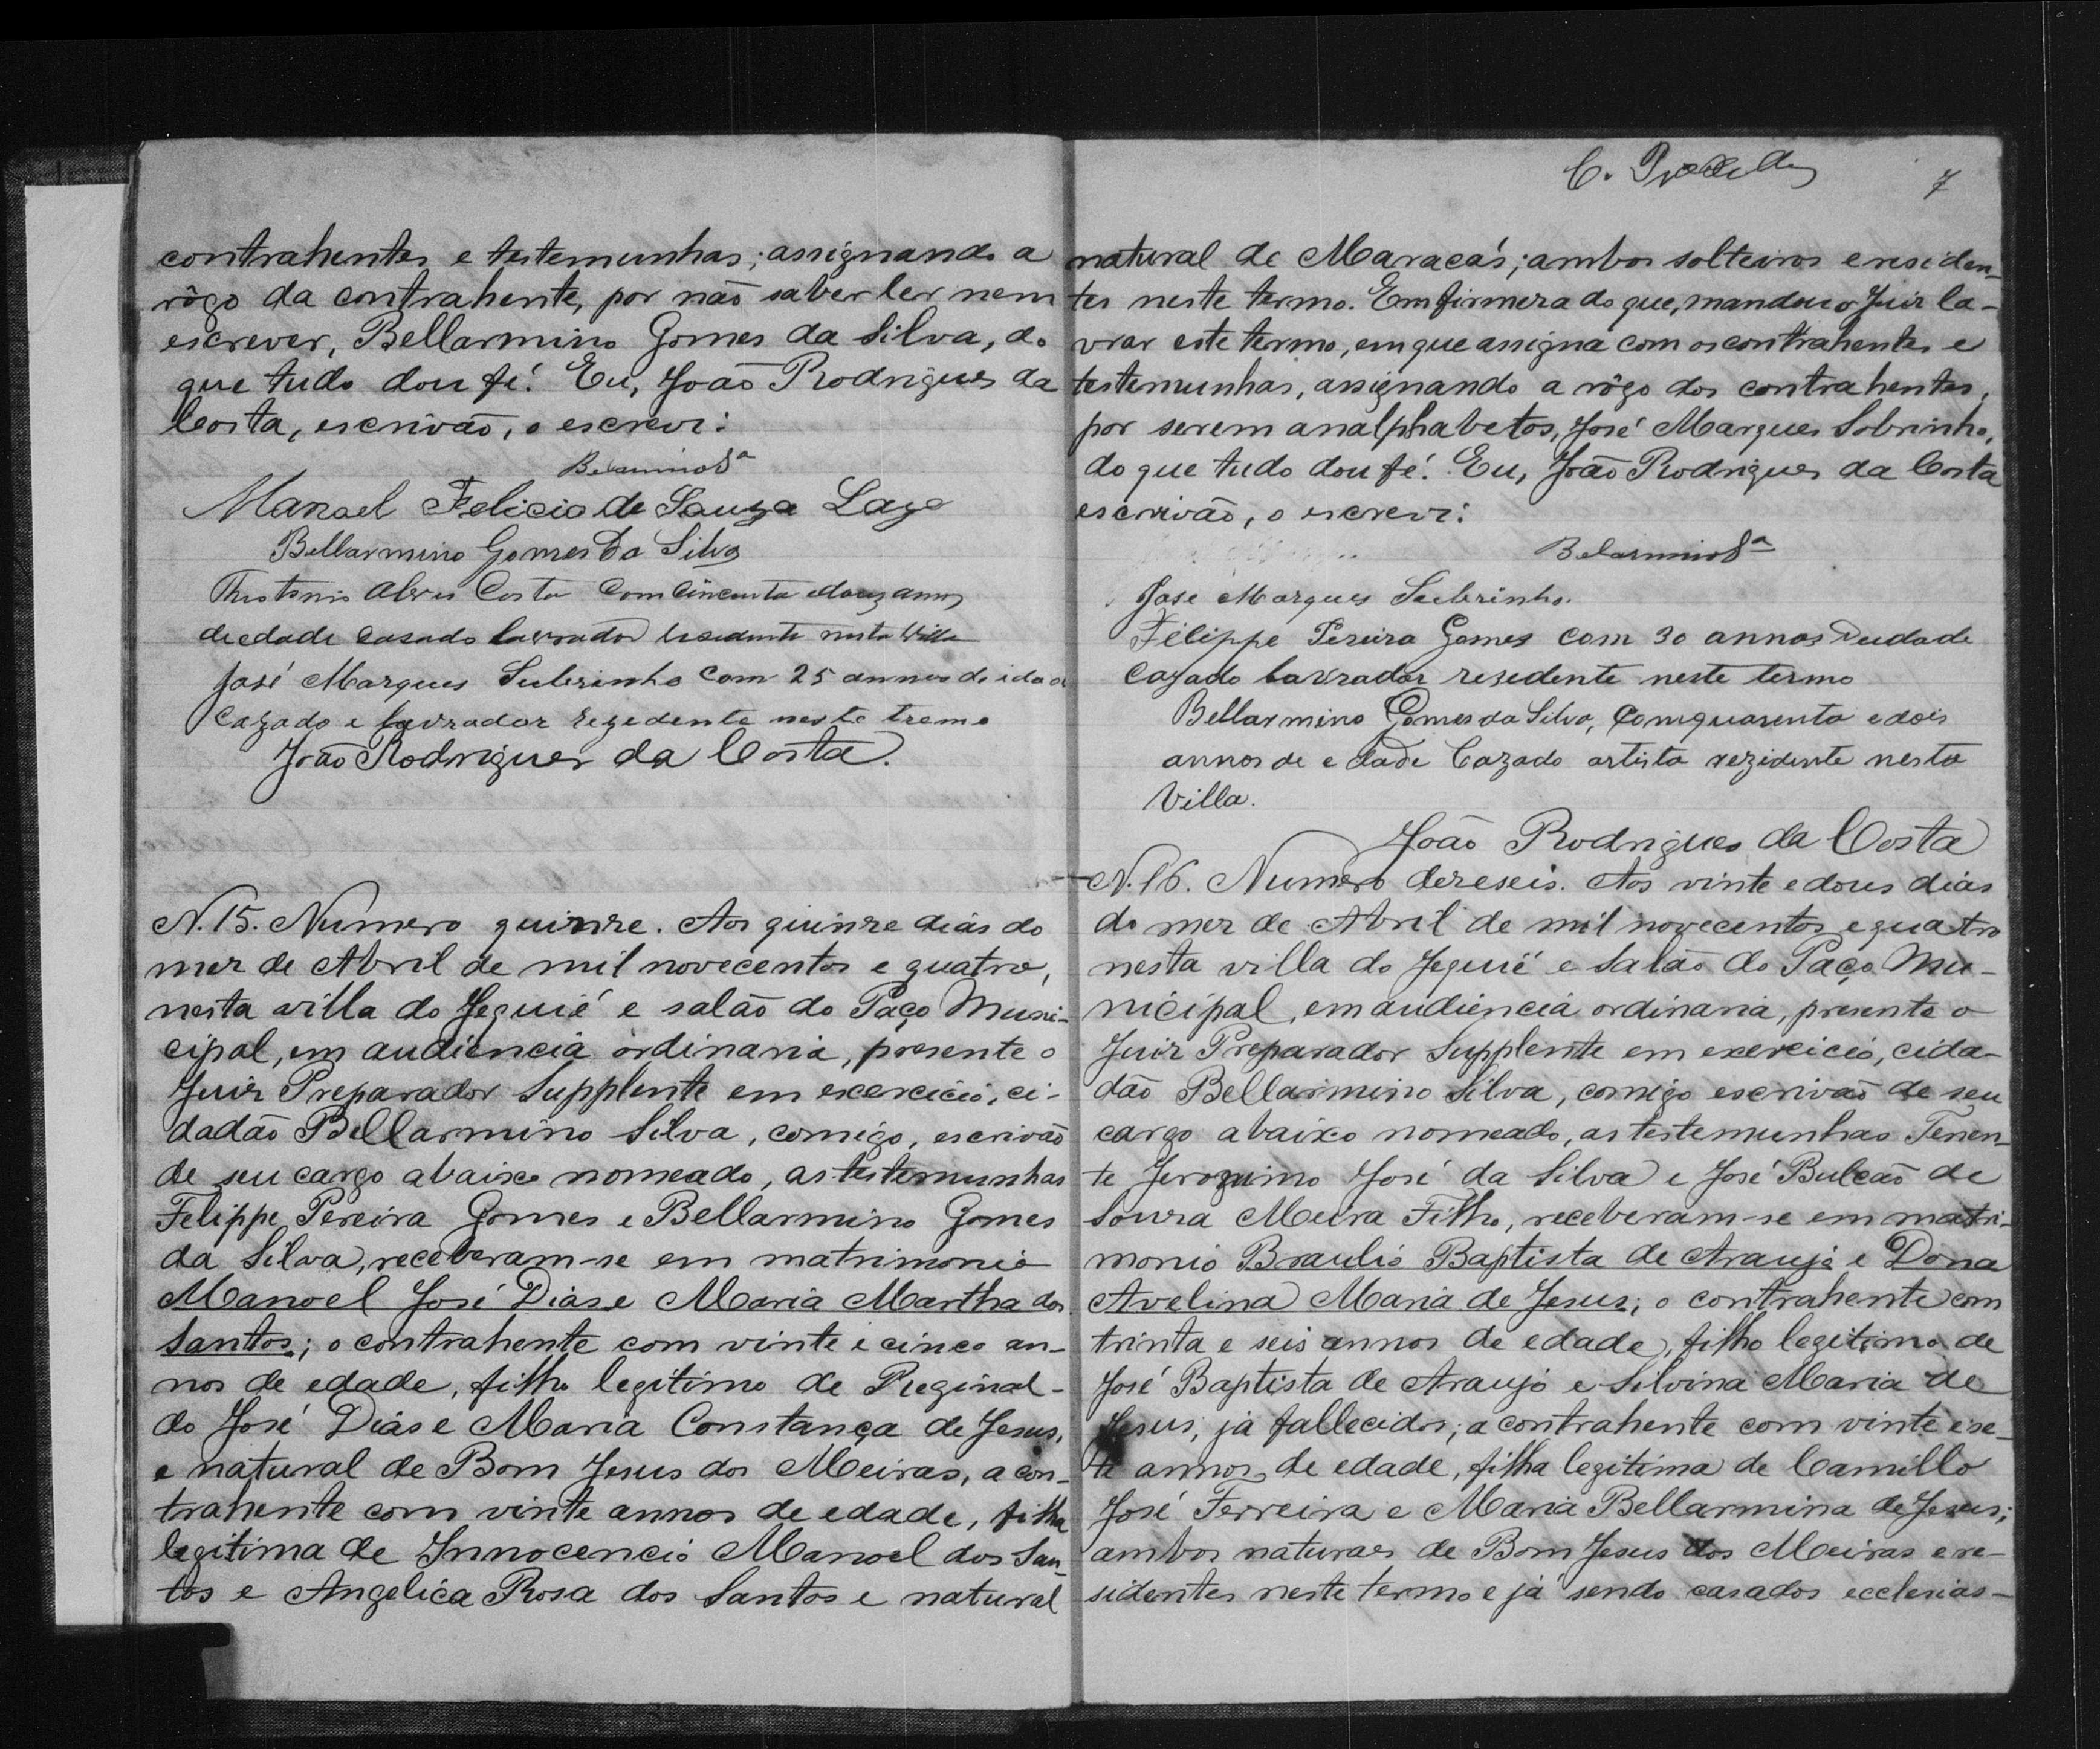 contrahentes e testemunhas; assignando a
rôgo da contrahente, por não saber ler nem
escrever, Bellarmino Gomes da Silva, do
que tudo dou fé. Eu, João Rodrigues da
Costa, escrivão, o escrevi:
Belarmino Sª
Manoel Felicio de Souza Lago
Bellarmino Gomes Da Silva
Alves Costa Com Cincoenta edous annos
de edade Casado lavrador residente nesta Villa
José Marques Suberinho Com 25 annos de idad
Cazado e lavrador rezedente neste tremo
João Rodrigues da Costa.
N. 15. Numero quinze. Aos quinze dias do
mez de Abril de mil novecentos e quatro,
nesta villa do Jequié e salão do Paço Muni-
cipal, em audiencia ordinaria, presente o
Juiz Preparador Supplente em excercicio, ci-
dadão Bellarmino Silva, comigo, escrivão
de seu cargo abaixo nomeado, as testemunhas
Felippe Pereira Gomes e Bellarmino Gomes
da Silva, receberam-se em matrimonio
Manoel José Dias e Maria Martha dos
Santos; o contrahente com vinte e cinco an-
nos de edade, filho legitimo de Reginal-
do José Dias e Maria Constança de Jesus,
e natural de Bom Jesus dos Meiras, a con-
trahente com vinte annos de edade, filha
legitima de Innocencio Manoel dos San-
tos e Angelica Rosa dos Santos e natural
C.
7
natural de Maracás; ambos solteiros e residen-
tes neste termo. Em firmeza do que, mandou o Juiz la-
vrar este termo, em que assigna com os contrahentes e
testemunhas, assignando a rôgo dos contrahentes,
por serem analphabetos, José Marques Sobrinho,
do que tudo dou fé. Eu, João Rodrigues da Costa
escrivão, o escrevi:
Belarmino Sª
Jose Marques Suberinho.
Felippe Pereira Gomes com 30 annos Deidade
Cazado lavrador resedente neste termo
Bellarmino Gomes da Silva, Comquarenta e dois
annos de edade Cazado artista rezidente nesta
Villa.
João Rodrigues da Costa
N. 16. Numero dezeseis. Aos vinte e dous dias
do mez de Abril de mil novecentos e quatro
nesta villa do Jequié e salão do Paço Mu-
nicipal, em audiencia ordinaria, presente o
Juiz Preparador Supplente em exercicio, cida-
dão Bellarmino Silva, comigo escrivão de seu
cargo abaixo nomeado, as testemunhas Tenen-
te Jeronimo José da Silva e José Bulcão de
Souza Meira Filho, receberam-se em matri-
monio Braulio Baptista de Araujo e Dona
Avelina Maria de Jesus; o contrahente com
trinta e seis annos de edade, filho legitimo de
José Baptista de Araujo e Silvina Maria de
Jesus, já fallecidos; a contrahente com vinte e se-
te annos de edade, filha legitima de Camillo
José Ferreira e Maria Bellarmina de Jesus;
ambos naturaes de Bom Jesus dos Meiras e re-
sidentes neste termo e já sendo casados ecclesias-